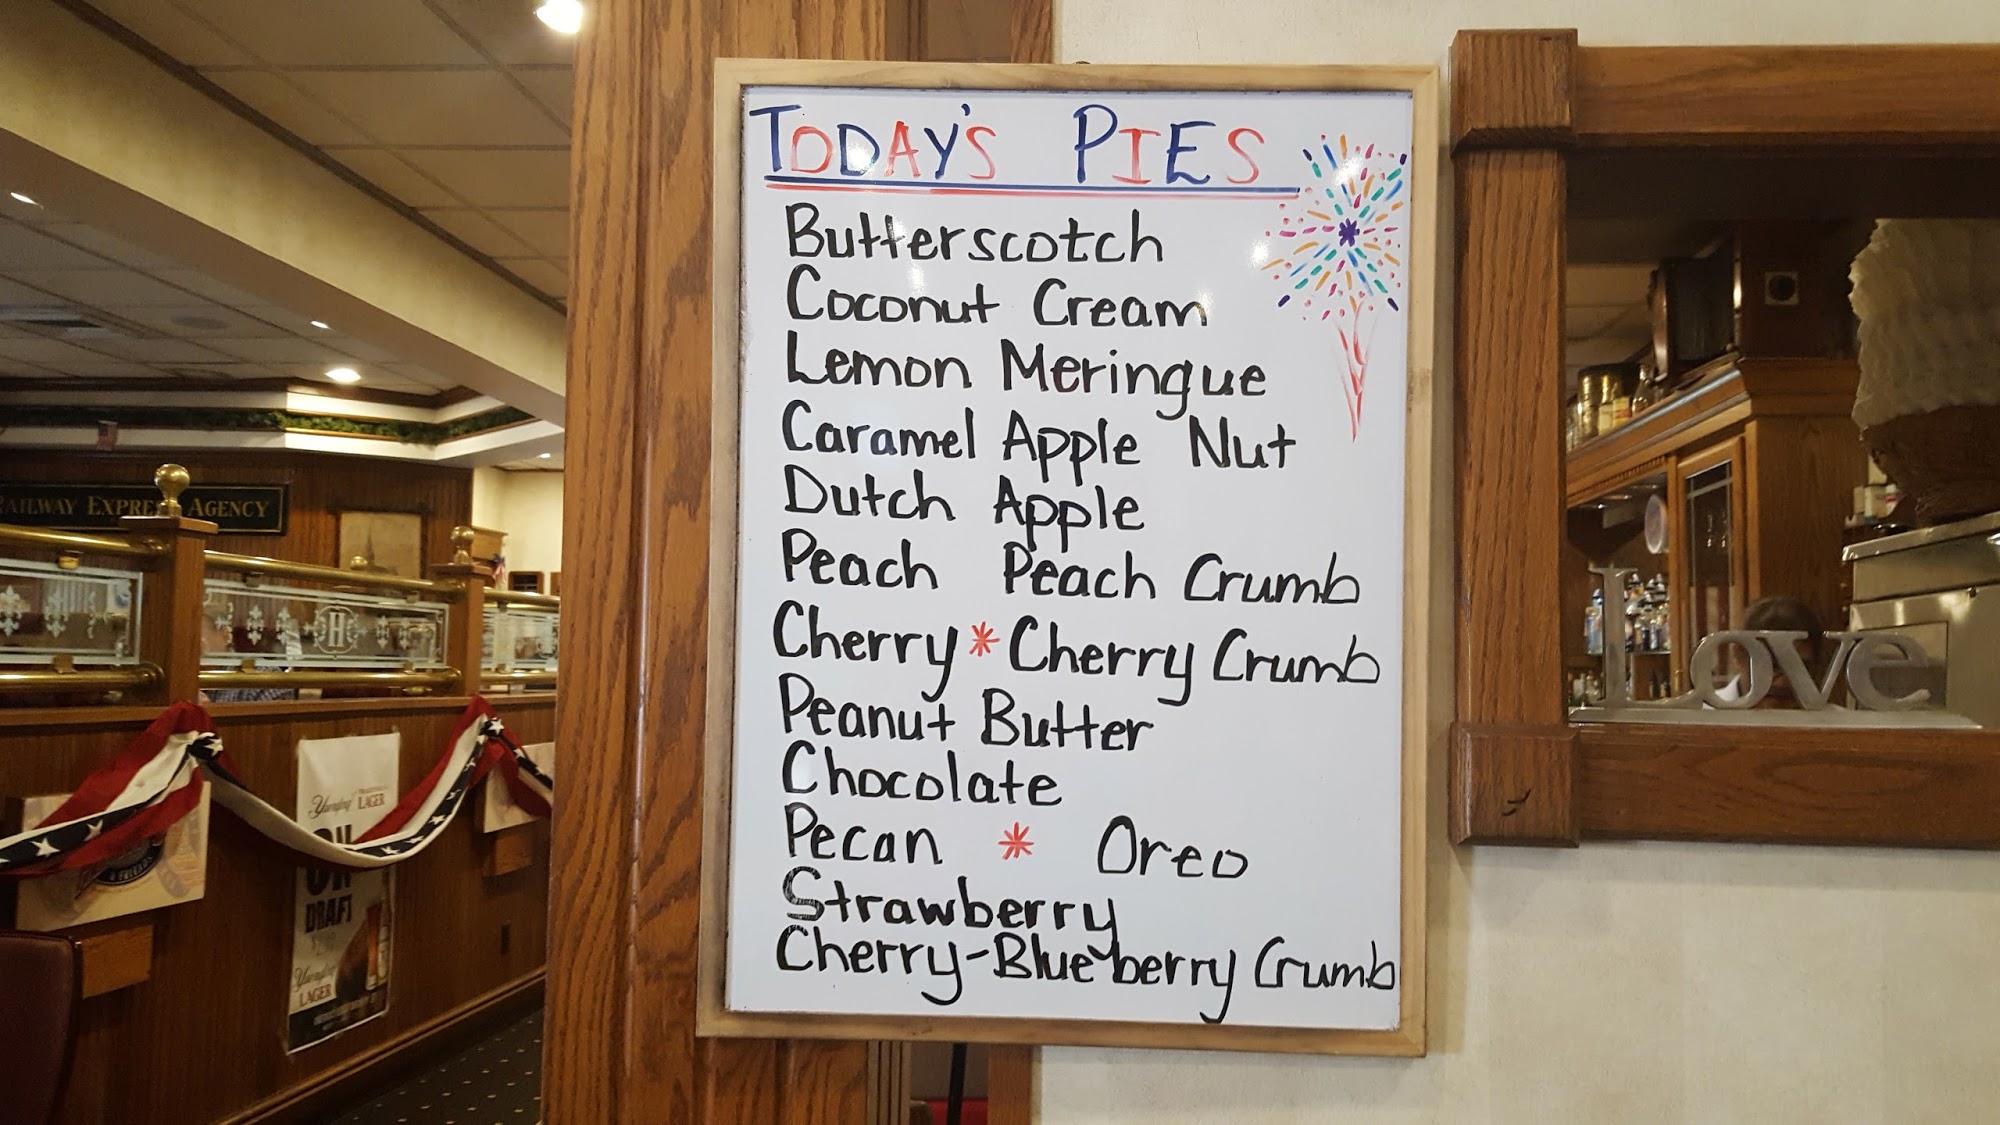 TODAY'S PIES
Butterscotch
Coconut Cream
Lemon Meringue
Caramel Apple Nut
Dutch Apple
Peach Peach Crumb
Cherry * Cherry Crumb
Peanut Butter
Chocolate
Pecan * Oreo
Strawberry
Cherry-Blueberry Crumb
RAILWAY EXPRESS AGENCY
H
Yuengling
LAGER
ON
DRAFT
Yuengling
LAGER
Love